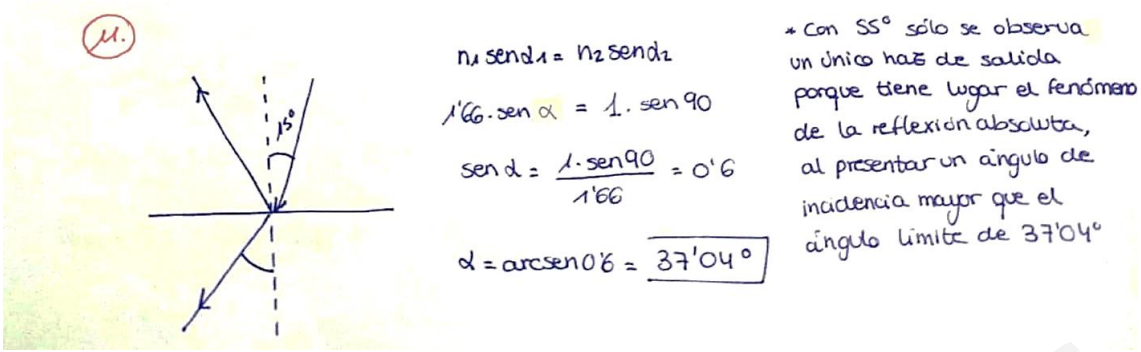 11.
15°
n1 send1 = n2 send2
1'66. sen α = 1. sen 90
sen α = 1. sen 90 / 1'66 = 0'6
α = arcsen 0'6 = 37'04°
* Con 55° sólo se observa
un único haz de salida
porque tiene lugar el fenómeno
de la reflexión absoluta,
al presentar un ángulo de
incidencia mayor que el
ángulo límite de 37'04°